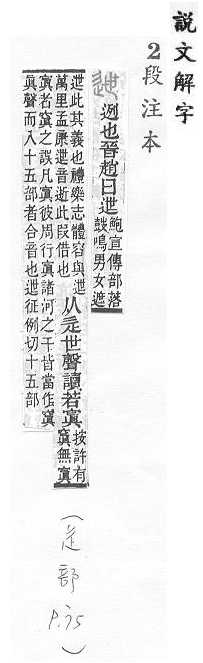 說文解字
2段注本
迾也晉趙曰迣
鮑宣傳部落
鼓鳴男女遮
迣此其義也禮樂志體容與迣
萬里孟康迣音逝此叚借也
从辵世聲讀若寘
按許有
窴無寘
寘者窴之誤凡寘彼周行寘諸河之干皆當作窴
眞聲而入十五部者合音也迣征例切十五部
(辵部 P.75)